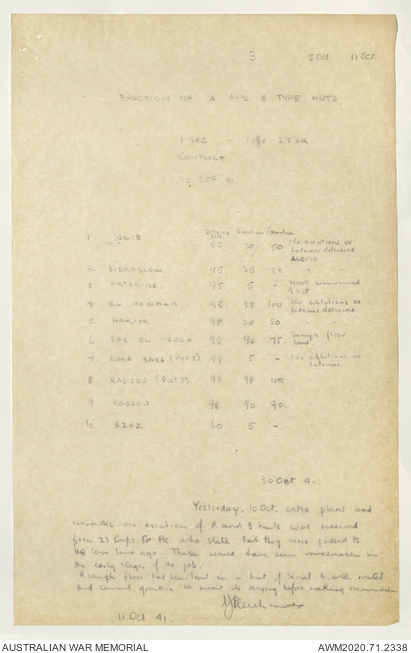 3 3 Oct 11 Oct
ERECTION OF A AND B TYPE HUTS
1 SEC - 1 offr 27 OR
CONTACT
30 SEP 41
Delivery Erection Foundation
1 IDLIB 95 70 50 No ablutions or
latrines delivered
ALEPPO
2 95 75 35 "
3 95 5 - Work commenced
9 Oct
4 EL HAMMAM 98 98 100 No ablutions or
latrines delivered
5 HARIM 98 20 50 "
6 98 90 75 Sample floor
laid
7 98 5 - No ablutions or
latrines
8 RADJOU 98 98 100
9 RADJOU 98 90 90
10. AZAZ 60 5 -
30 Oct 41
Yesterday, 10 Oct, extra plans and
remarks on erection of A and B huts was received
from 23 Corps For Pk who state that they were posted to
us some time ago. These would have been invaluable in
the early stages of the job.
A sample floor has been laid in a hut of serial 6, with
and cement grouting. We await its drying before making
11 Oct 41.
AUSTRALIAN WAR MEMORIAL AWM2020.71.2338